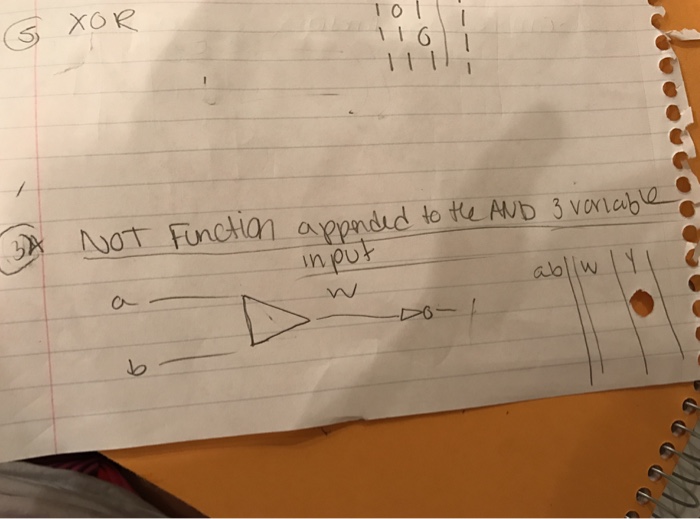 1 0 1 | 1
⑤ XOR
1 1 0 | 1
1 1 1 | 1
NOT Function appnded to the AND 3 variable
input
ab || W | Y |
a
W
b